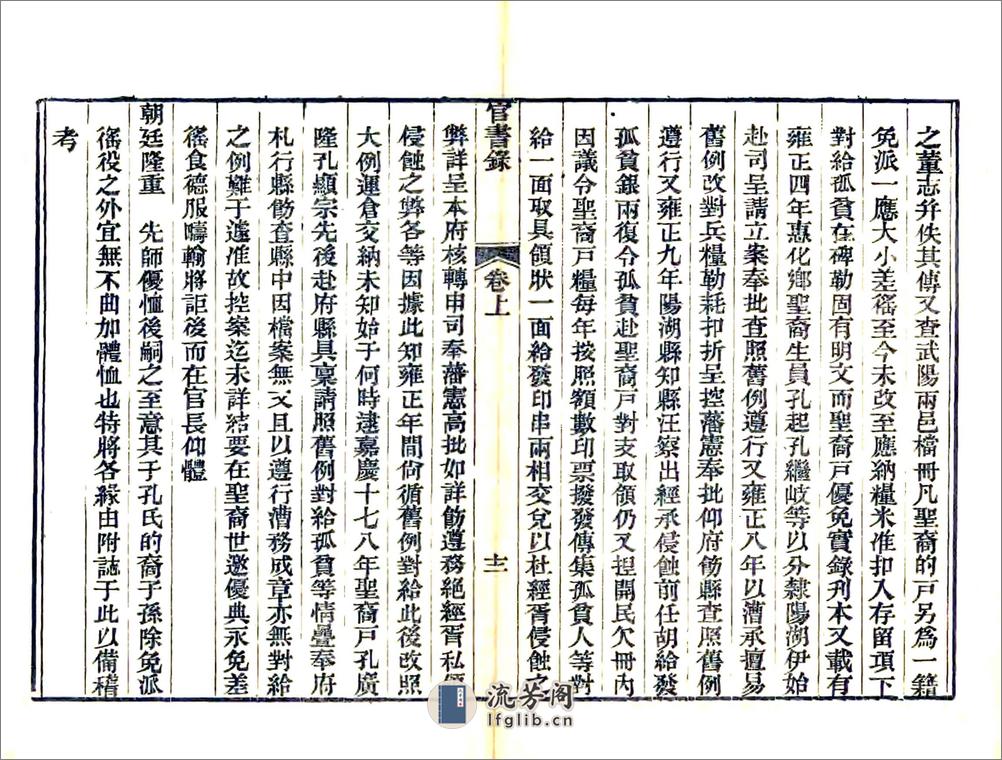 之董志弁佚其傳又查武陽兩邑檔冊凡聖裔的戸另爲一籍
免派一應大小差徭至今未改至應納糧米准扣入存留項下
對給孤貧在碑勒固有明文而聖裔戸優免實錄刋本又載有
雍正四年惠化鄉聖裔生員孔起孔繼岐等以分隸陽湖伊始
赴司呈請立案奉批查照舊例遵行又雍正八年以漕承擅易
舊例改對兵糧勒耗扣折呈控藩憲奉批仰府飭縣查照舊例
遵行又雍正九年陽湖縣知縣汪察出經承侵蝕前任胡給發
孤貧銀兩復令孤貧赴聖裔戸對支取領仍又捏開民欠冊內
因議令聖裔戸糧每年按照額數印票撥發傳集孤貧人等對
給一面取具領狀一面給發印串兩相交兌以杜經胥侵蝕之
官書錄
卷上
十二
弊詳呈本府核轉申司奉藩憲高批如詳飭遵務絕經胥私
侵蝕之弊各等因據此知雍正年間尙循舊例對給此後改照
大例運倉交納未知始于何時逮嘉慶十七八年聖裔戸孔廣
隆孔顯宗先後赴府縣具稟請照舊例對給孤貧等情疊奉府
札行縣飭查縣中因檔案無攷且以遵行漕務成章亦無對給
之例難于遽准故控案迄未詳結要在聖裔世邀優典永免差
徭食德服疇輸將詎後而在官長仰體
朝廷隆重 先師優恤後嗣之至意其于孔氏的裔子孫除免派
徭役之外宜無不曲加體恤也特將各緣由附誌于此以備稽
考
流芳阁
lfglib.cn